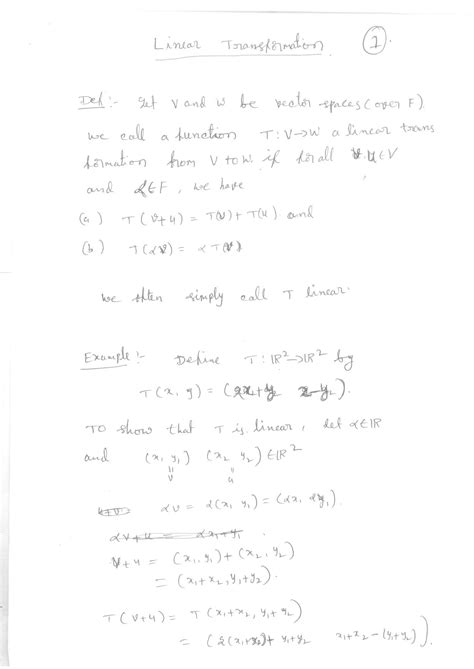 Linear Transformation
1.
Def:- Let V and W be vector spaces (over F)
we call a function T: V→W a linear trans
formation from V to W if for all v, u ∈ V
and α ∈ F, we have
(a) T(v+u) = T(v) + T(u) and
(b) T(αv) = αT(v)
we often simply call T linear.
Example:- Define T: ℝ²→ℝ² by
T(x, y) = (2x+y x-y).
To show that T is linear, let α∈ℝ
and (x₁ y₁) (x₂ y₂) ∈ ℝ²
" "
v u
αv = α(x₁ y₁) = (αx₁ αy₁)
v+u = (x₁, y₁) + (x₂, y₂)
= (x₁+x₂, y₁+y₂).
T(v+u) = T(x₁+x₂, y₁+y₂)
= (2(x₁+x₂)+ y₁+y₂ x₁+x₂-(y₁+y₂)).